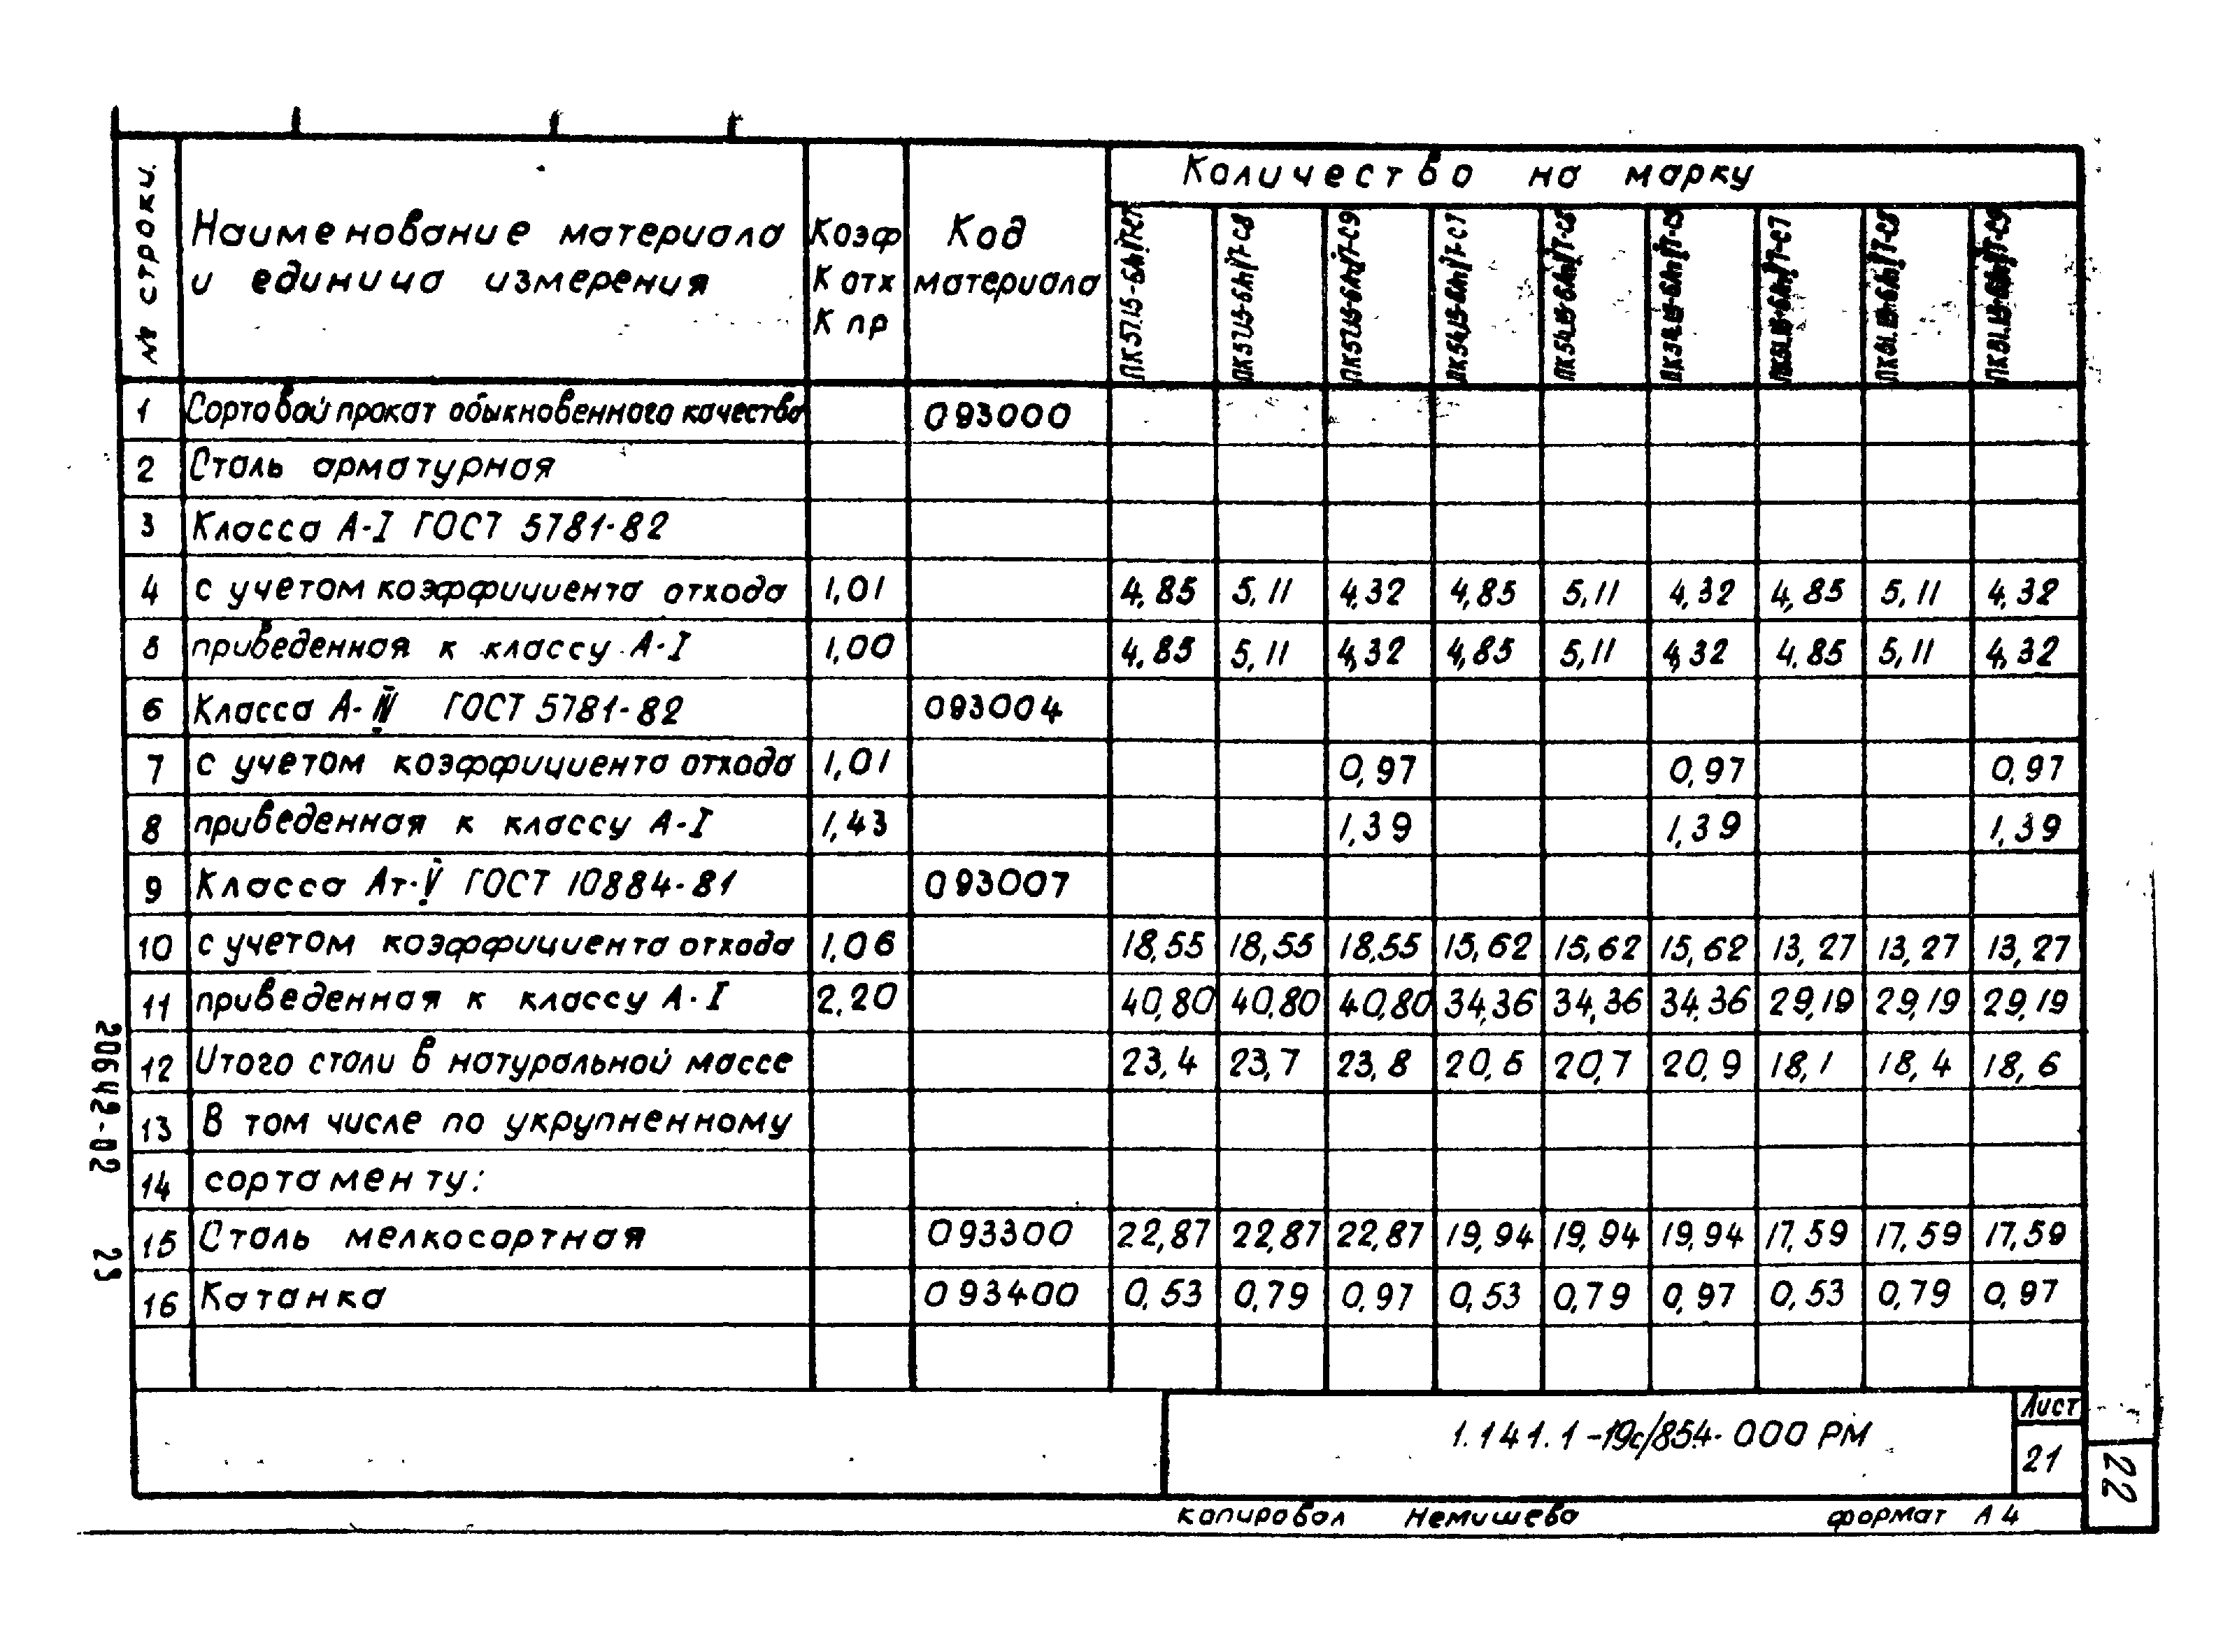 № строки.
Наименование материала
и единица измерения
Коэф
К отх
К пр
Код
материала
Количество на марку
ПК57.15-6АтV-С7
ПК57.15-6АтV-С8
ПК57.15-6АтV-С9
ПК54.15-6АтV-С7
1 Сортовой прокат обыкновенного качества 093000
2 Сталь арматурная
3 Класса А-I ГОСТ 5781-82
4 с учетом коэффициента отхода 1,01 4,85 5,11 4,32 4,85 5,11 4,32 4,85 5,11 4,32
5 приведенная к классу А-I 1,00 4,85 5,11 4,32 4,85 5,11 4,32 4,85 5,11 4,32
6 Класса А-III ГОСТ 5781-82 093004
7 с учетом коэффициента отхода 1,01 0,97 0,97 0,97
8 приведенная к классу А-I 1,43 1,39 1,39 1,39
9 Класса Ат-V ГОСТ 10884-81 093007
10 с учетом коэффициента отхода 1,06 18,55 18,55 18,55 15,62 15,62 15,62 13,27 13,27 13,27
11 приведенная к классу А-I 2,20 40,80 40,80 40,80 34,36 34,36 34,36 29,19 29,19 29,19
12 Итого стали в натуральной массе 23,4 23,7 23,8 20,5 20,7 20,9 18,1 18,4 18,6
13 В том числе по укрупненному
14 сортаменту:
15 Сталь мелкосортная 093300 22,87 22,87 22,87 19,94 19,94 19,94 17,59 17,59 17,59
16 Катанка 093400 0,53 0,79 0,97 0,53 0,79 0,97 0,53 0,79 0,97
20642-02 23
1.141.1-19с/85.4-000 РМ
Лист
21
22
копировал Немишева формат А4